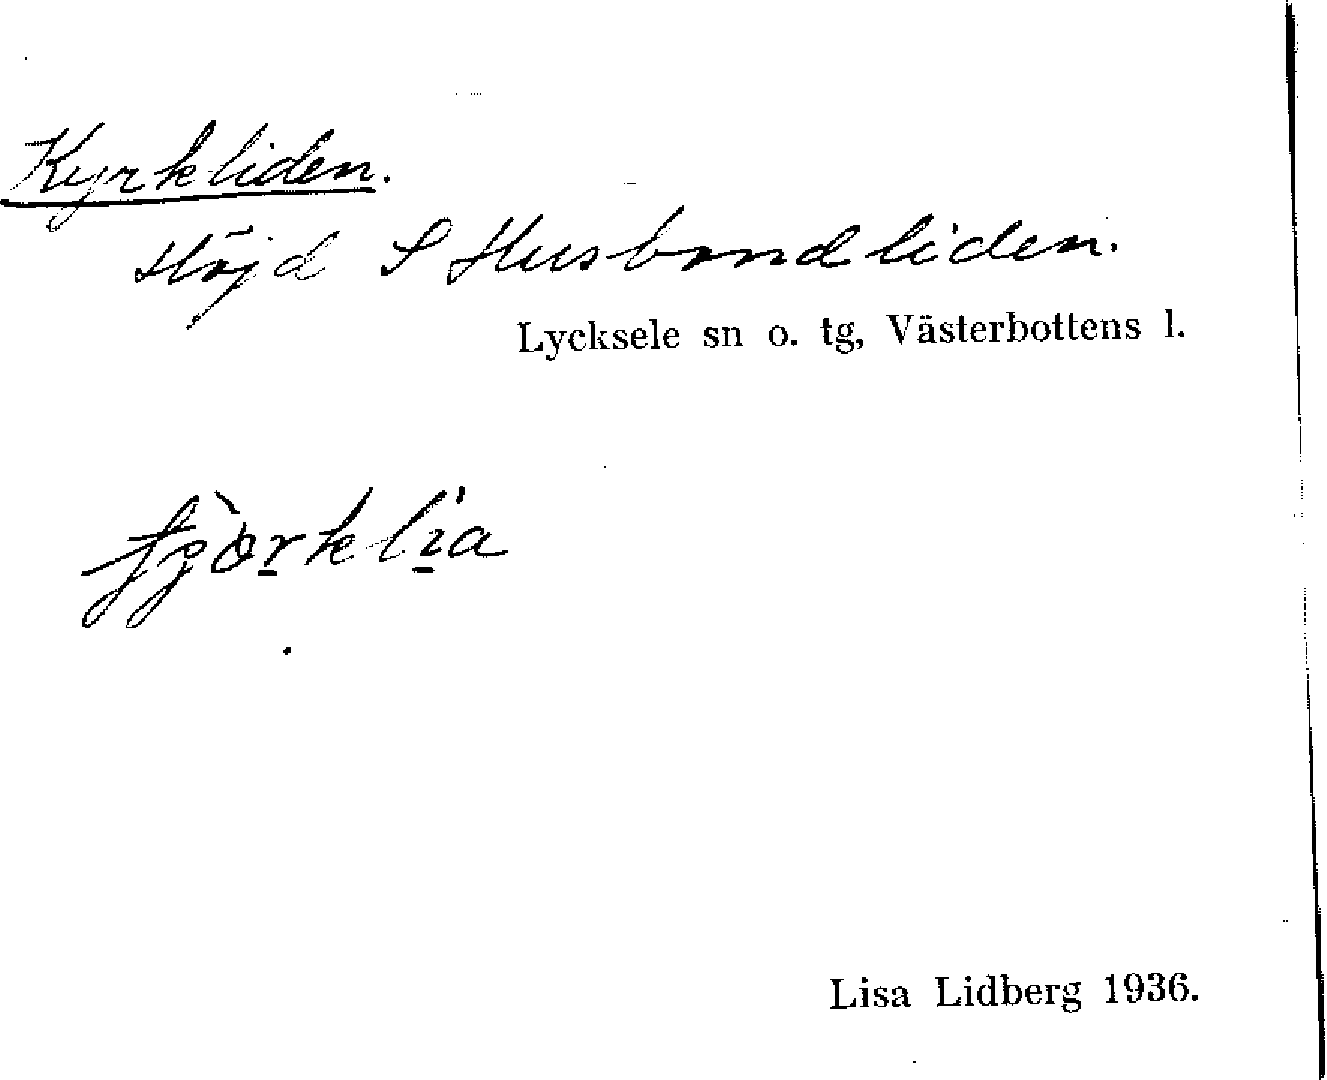 Kyrkliden.
Höjd S Husbondliden.
Lycksele sn o. tg, Västerbottens l.
Lisa Lidberg 1936.